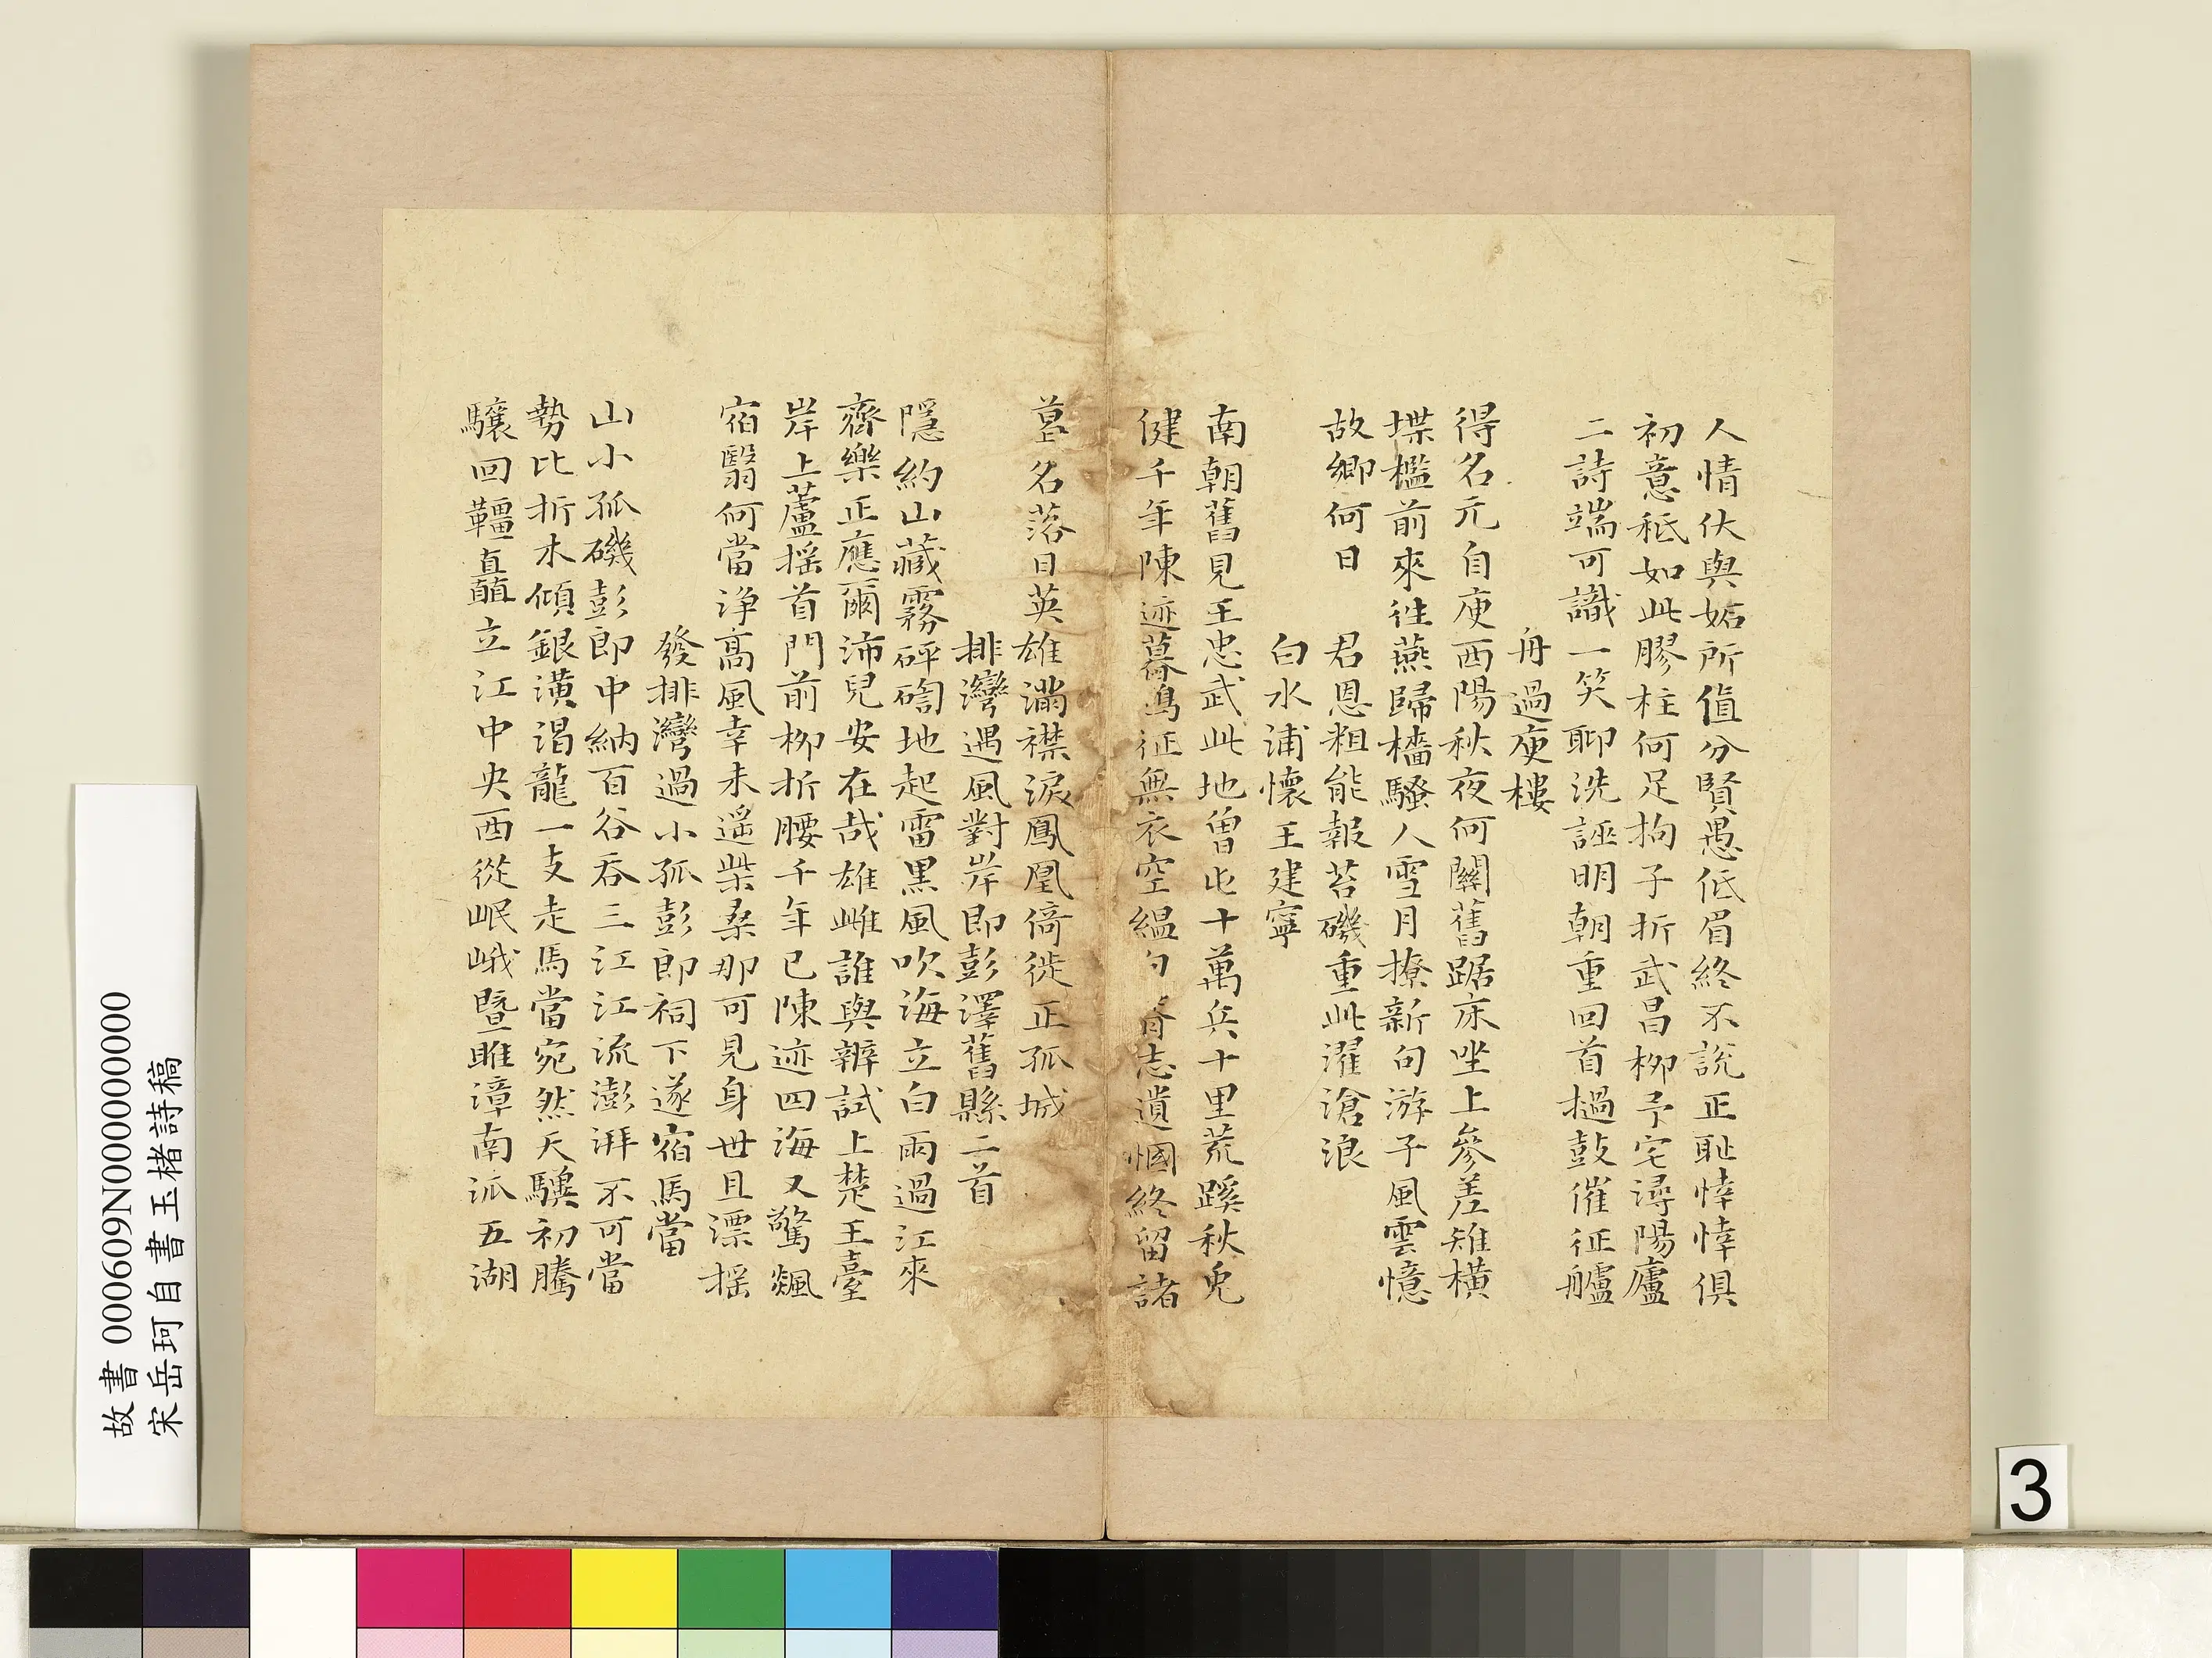 人情伏與妬所值分賢愚低眉終不說正恥悻悻俱
初意秖如此膠柱何足拘子折武昌柳予宅潯陽廬
二詩端可識一笑聊洗誣明朝重回首撾鼓催征艫
舟過庾樓
得名元自庾西陽秋夜何關舊踞床坐上參差雉橫
堞檻前來徃燕歸檣騷人雪月撩新句游子風雲憶
故鄉何日 君恩粗能報苔磯重此濯滄浪
白水浦懷王建寧
南朝舊見王忠武此地曾屯十萬兵十里荒蹊秋兔
健千年陳迹暮鴻征無衣空縕勾 志遺惘終留諸
葛名落日英雄滿襟淚鳳凰倚徙正孤城
排灣遇風對岸即彭澤舊縣二首
隱約山藏霧砰訇地起雷黑風吹海立白雨過江來
齊樂正應爾沛兒安在哉雄雌誰與辨試上楚王臺
岸上蘆搖首門前柳折腰千年已陳迹四海又驚飆
宿翳何當淨高風幸未遥柴桑那可見身世且漂搖
發排灣過小孤彭郎祠下遂宿馬當
山小孤磯彭郎中納百谷吞三江江流澎湃不可當
勢比折木傾銀潢渴龍一支走馬當宛然天驥初騰
驤回韁直矗立江中央西從岷峨暨雎漳南派五湖
故書 000609N000000000
宋岳珂自書玉楮詩稿
3